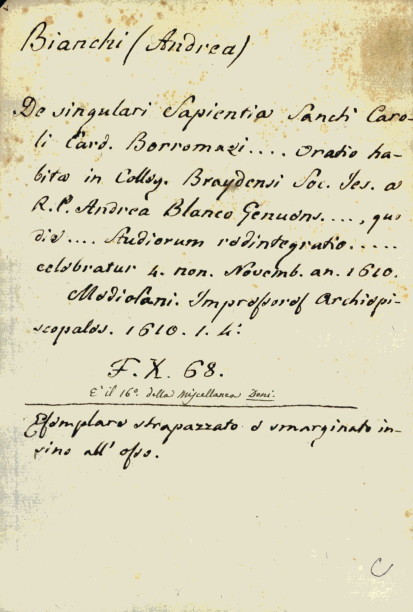 Bianchi (Andrea)
De singulari Sapientia Sancti Caro-
li Card. Borromæi.... Oratio ha-
bita in Colleg. Braydensi Soc. Jes. a
R. P. Andrea Blanco Genuens...., quo
die.... Studiorum redintegratio.....
celebratur 4. non. Novemb. an. 1610.
Mediolani. Impressores Archiepi-
scopales. 1610. 1. 4:
F. X. 68.
E' il 16º. della Miscellanea Doni.
Esemplare strapazzato e smarginato in-
sino all' osso.
C